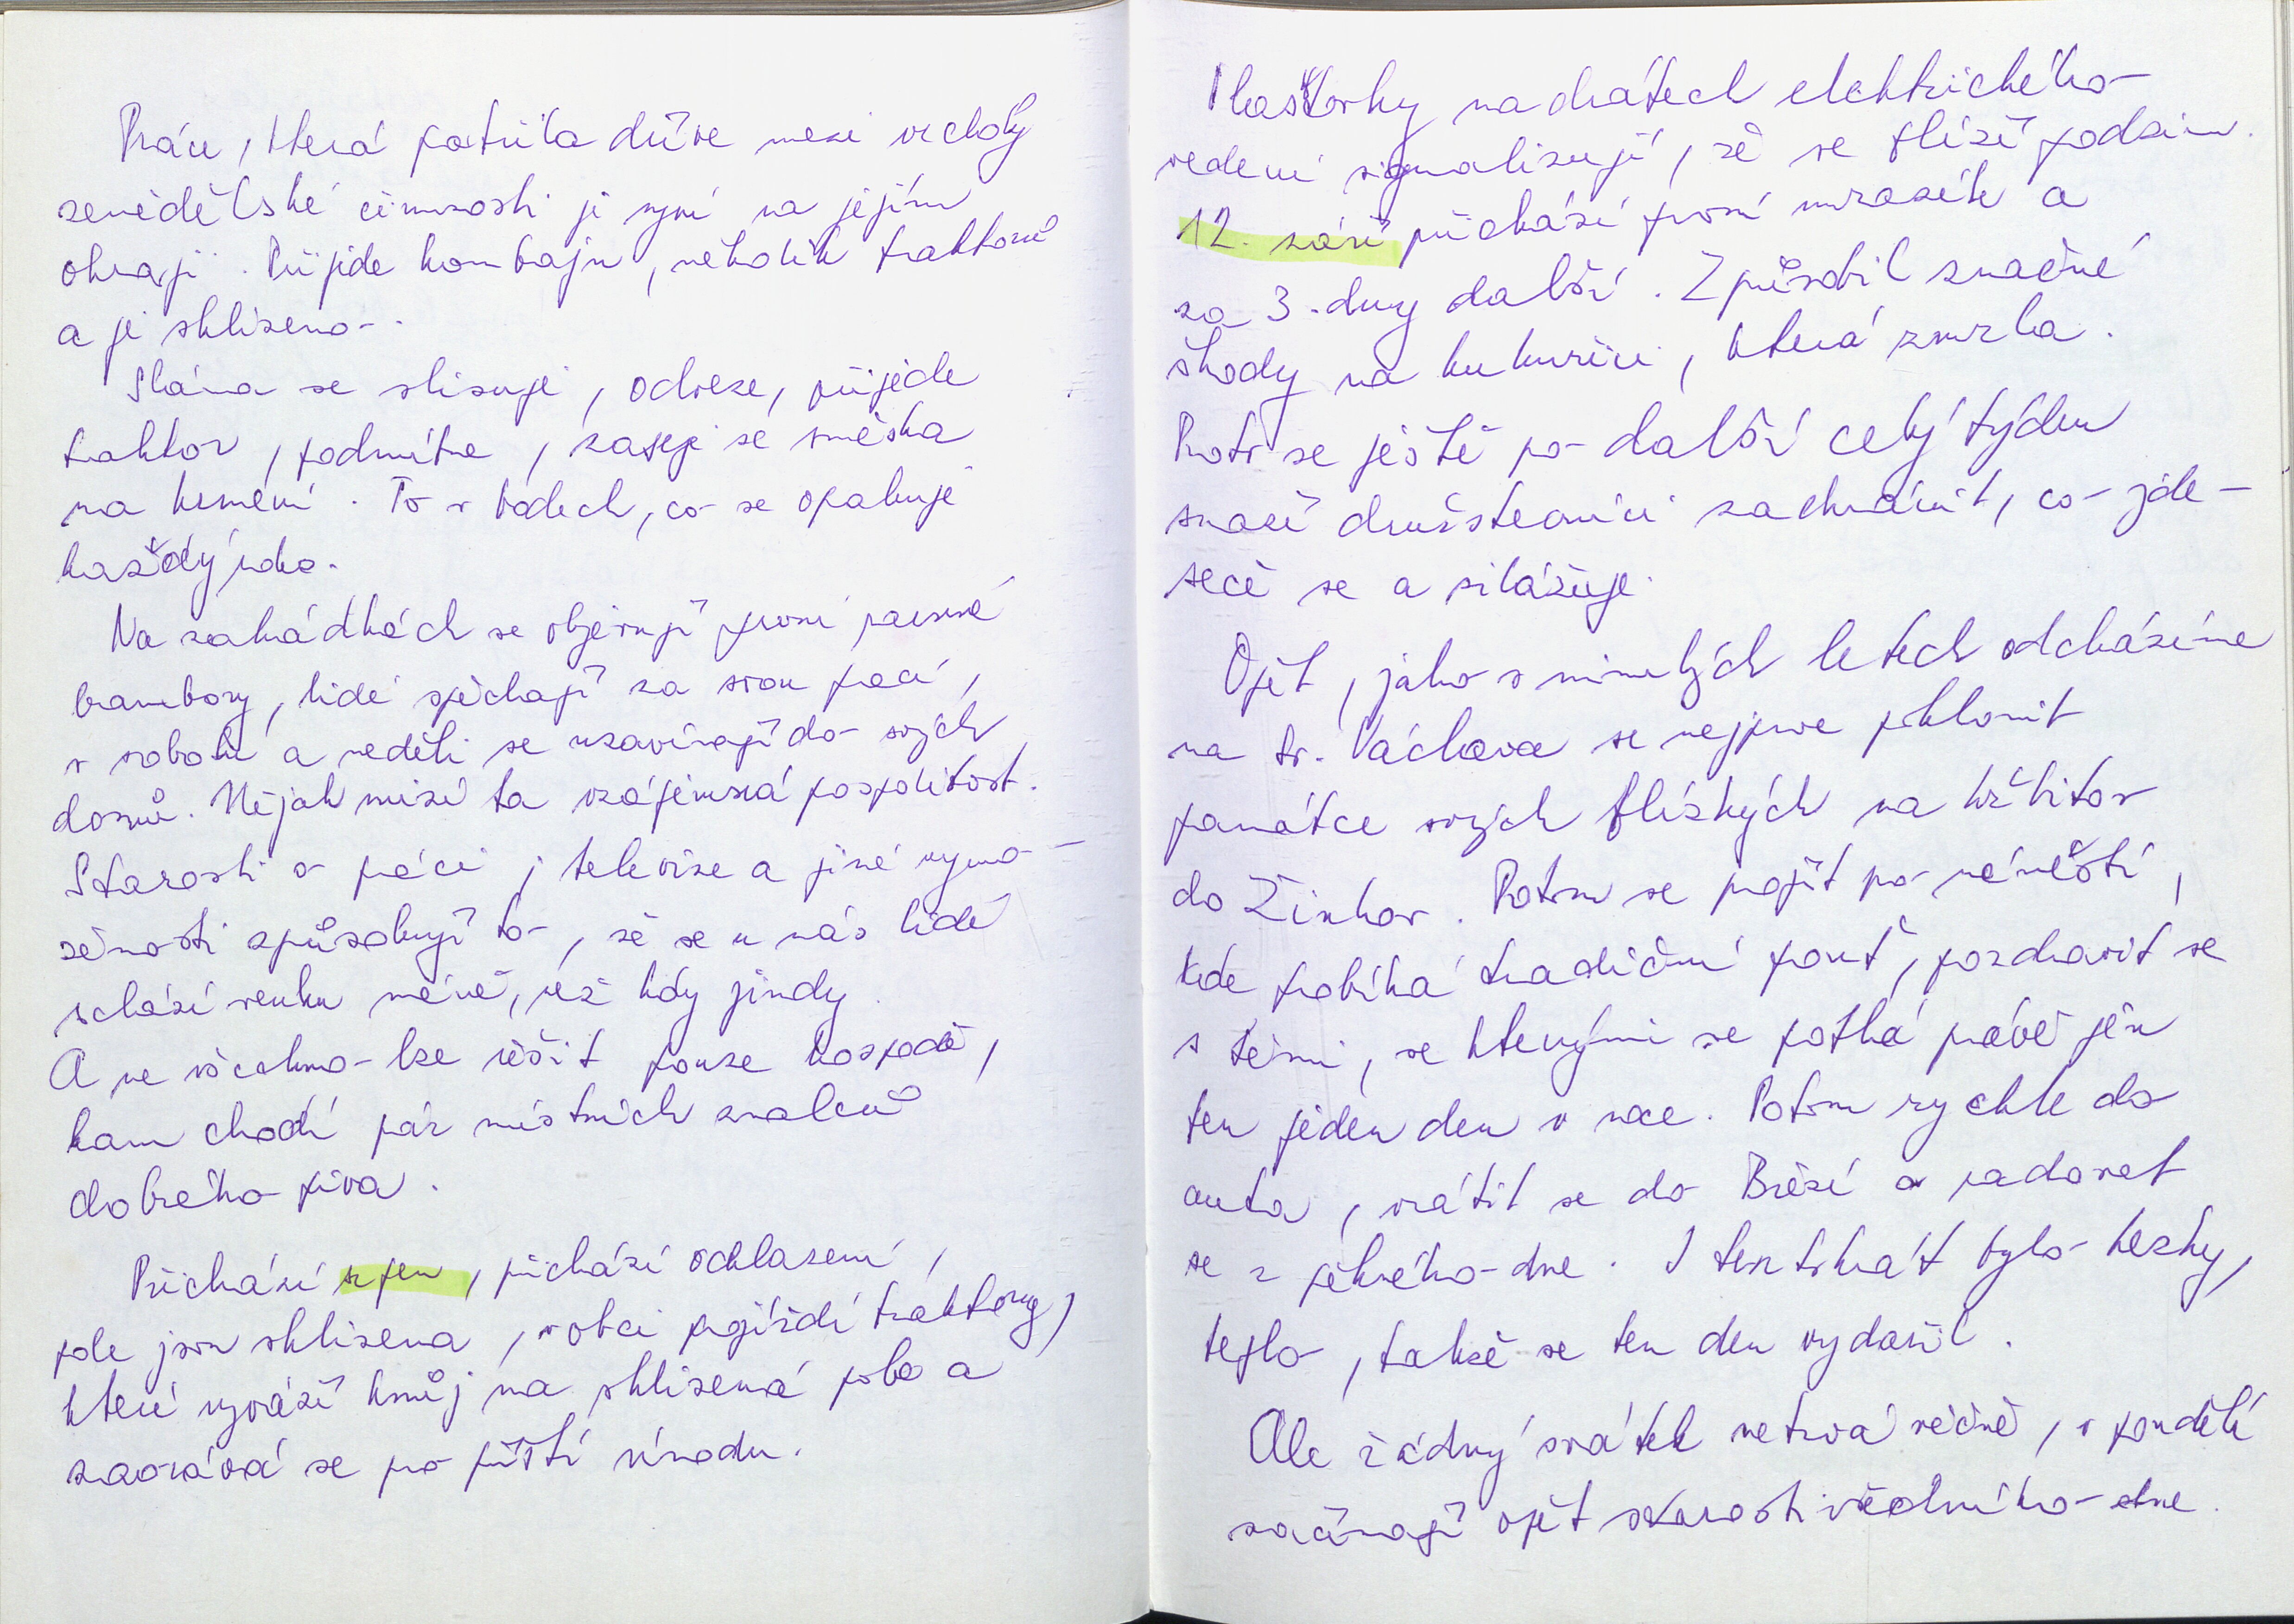 Práce, která patřila dříve mezi vrcholy
zemědělské činnosti je nyní na jejím
okraji. Přijede kombajn, několik traktorů
a je sklizeno.
Sláma se slisuje, odveze, přijede
traktor, podmítne, zaseje se směska
na krmení. To v bodech, co se opakuje
každý rok.
Na zahrádkách se objevují první ranné
brambory, lidé spěchají za svou prací,
v sobotu a neděli se uzavírají do svých
domů. Nějak mizí ta vzájemná pospolitost.
Starosti o práci, televize a jiné vymo-
ženosti způsobují to, že se u nás lidé
schází venku méně, než kdy jindy.
A ne všechno lze řešit pouze hospodě,
kam chodí pár místních znalců
dobrého piva.
Přichází srpen, přichází ochlazení,
pole jsou sklizena, v obci projíždí traktory,
které vyváží hnůj na sklizená pole a
zaorává se pro příští úrodu.
Vlaštovky na drátech elektrického
vedení signalizují, že se blíží podzim.
12. září přichází první mrazík a
za 3. dny další. Způsobil značné
škody na kukuřici, která zmrzla.
Proto se ještě po další celý týden
snaží družstevníci zachránit, co jde -
seče se a silážuje.
Opět, jako v minulých letech odcházíme
na sv. Václava se nejprve poklonit
památce svých blízkých na hřbitov
do Žinkov. Potom se projít po náměstí,
kde probíhá tradiční pouť, pozdravit se
s těmi, se kterými se potká právě jen
ten jeden den v roce. Potom rychle do
auta, vrátit se do Březí a radovat
se z pěkného dne. I tentokrát bylo hezky,
teplo, takže se ten den vydařil.
Ale žádný svátek netrvá věčně, v pondělí
začínají opět starosti všedního dne.